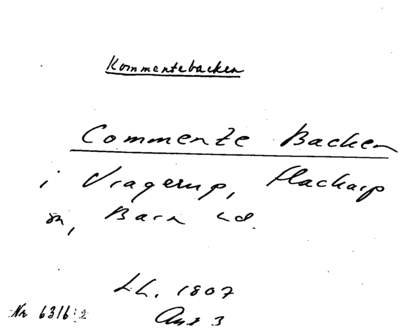 Kommentebacken
Commente Backen
i Vragerup, Flackarp
sn, Bara hd.
LL. 1807
Akt 3
Nr 6316:2